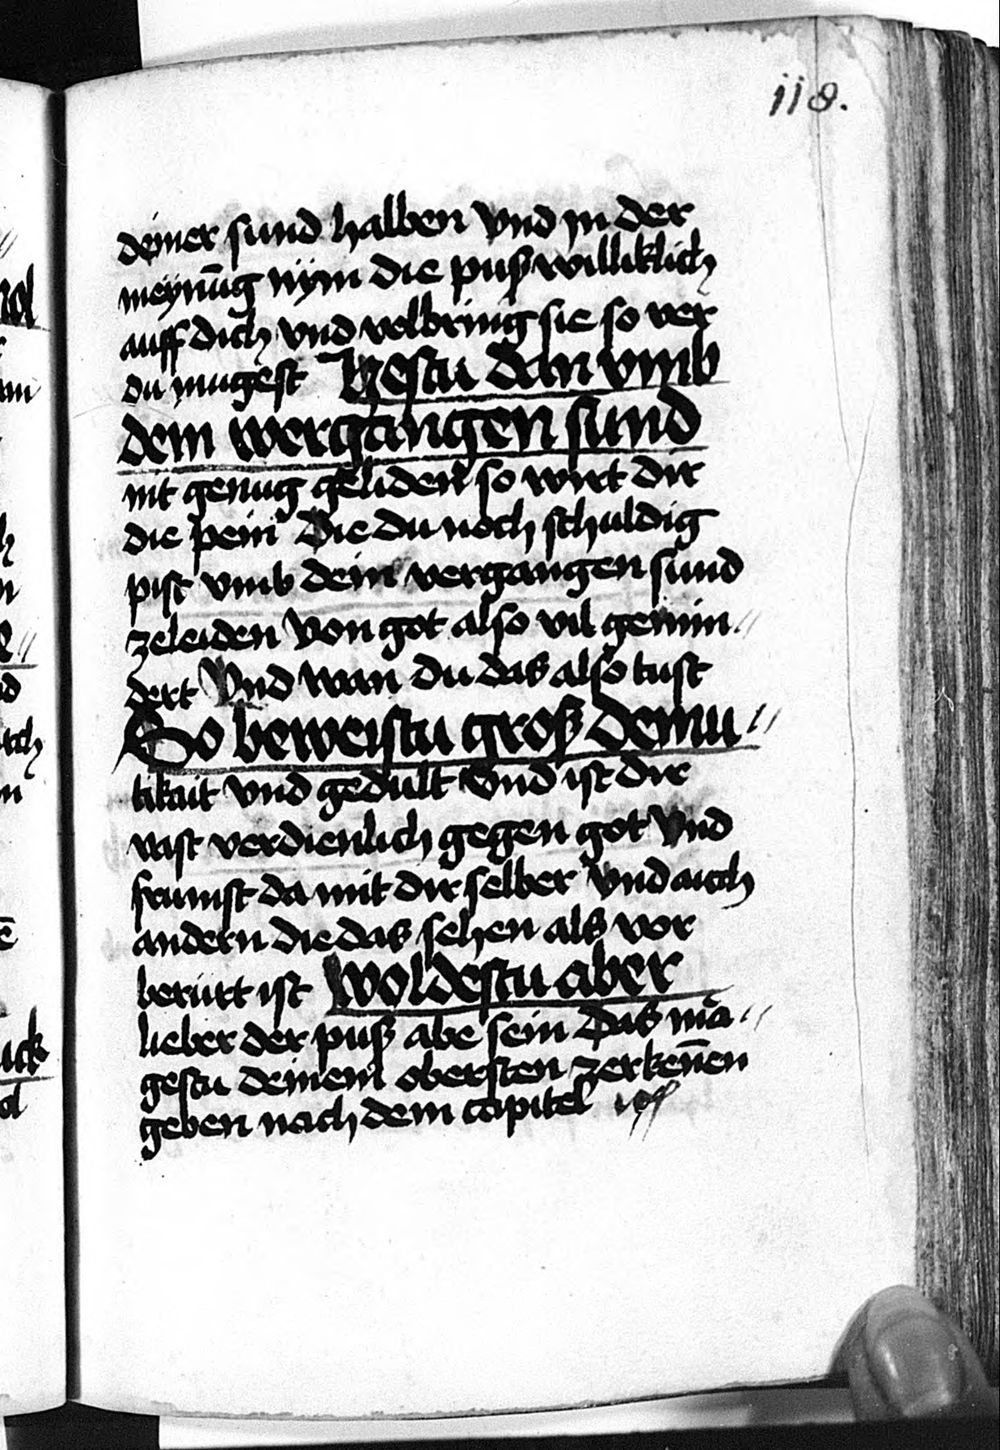 118.
deiner sund halben Vnd jn der
meynūg nÿm die puß williklich
auff dich vnd volbring sie so ver
du mugest Hestu dan vmb
dem wergangen sund
nit genug geliden so wirt dir
die pein Die du noch schuldig
pist vmb dein vergangen sund
zeleiden Von got also vil gemin//
dert Vnd wan du das also tust
So beweistu groß demu//
tikait vnd gedult Vnd ist dir
vast verdienlich gegen got Vnd
frumst da mit dir selber Vnd auch
andern die das sehen als vor
berürt ist Woldestu aber
lieber der puß abe sein Das mā//
gestu deinem obersten zerkeñen
geben nach dem capitel